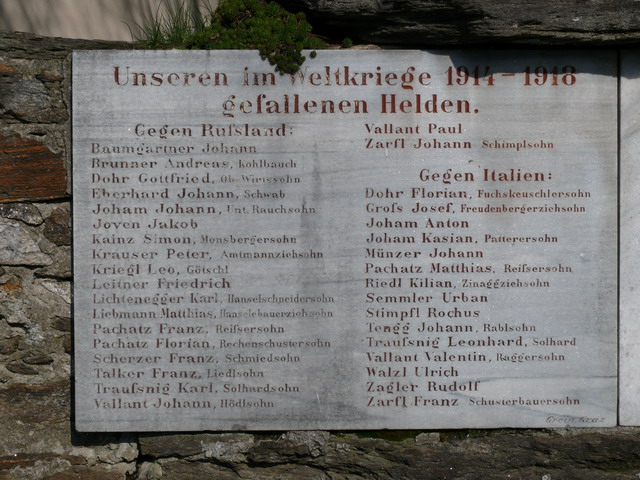 Unseren im Weltkriege 1914 – 1918
gefallenen Helden.
Gegen Rufsland:
Baumgartner Johann
Brunner Andreas, Kohlbauch
Dohr Gottfried, Ob. Wirtssohn
Eberhard Johann, Schwab
Joham Johann, Unt. Rauchsohn
Joven Jakob
Kainz Simon, Monsbergersohn
Krauser Peter, Amtmannziehsohn
Kriegl Leo, Götschl
Leitner Friedrich
Lichtenegger Karl, Hanselschneidersohn
Liebmann Matthias, Hanselebauerziehsohn
Pachatz Franz, Reifsersohn
Pachatz Florian, Rechenschustersohn
Scherzer Franz, Schmiedsohn
Talker Franz, Liedlsohn
Traufsnig Karl, Solhardsohn
Vallant Johann, Hödlsohn
Vallant Paul
Zarfl Johann Schimplsohn
Gegen Italien:
Dohr Florian, Fuchskeuschlersohn
Grofs Josef, Freudenbergerziehsohn
Joham Anton
Joham Kasian, Patterersohn
Münzer Johann
Pachatz Matthias, Reifsersohn
Riedl Kilian, Zinaggziehsohn
Semmler Urban
Stimpfl Rochus
Tengg Johann, Rablsohn
Traufsnig Leonhard, Solhard
Vallant Valentin, Raggersohn
Walzl Ulrich
Zagler Rudolf
Zarfl Franz Schusterbauersohn
Grein, Graz